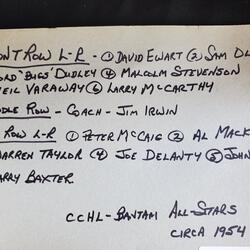 ONT ROW L-R - ① DAVID EWART ② SAM D
ORD "BUGS" DUDLEY ④ MALCOLM STEVENSON
EIL VARAWAY ⑥ LARRY MCCARTHY
DLE ROW - COACH - JIM IRWIN
ROW L-R - ① PETER MCCAIG ② AL MACK
ARREN TAYLOR ④ JOE DELANTY ⑤ JOHN
ARRY BAXTER
CCHL - BANTAM ALL-STARS
CIRCA 1954